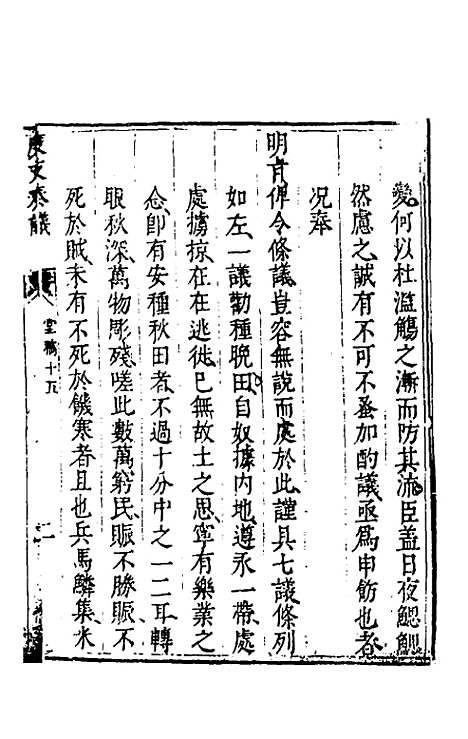 變何以杜濫觴之漸而防其流臣盖日夜鰓鰓
然慮之誠有不可不蚤加酌議亟爲申飭也者
况奉
明旨俾令條議豈容無說而處於此謹具七議條列
如左一議勸種晩田自奴據內地遵永一帶處
處擄掠在在逃徙已無故土之思寧有樂業之
念卽有安種秋田者不過十分中之一二耳轉
眼秋深萬物彫殘嗟此數萬窮民賑不勝賑不
死於賊未有不死於饑寒者且也兵馬鱗集米
度支奏議
堂稿十五
二